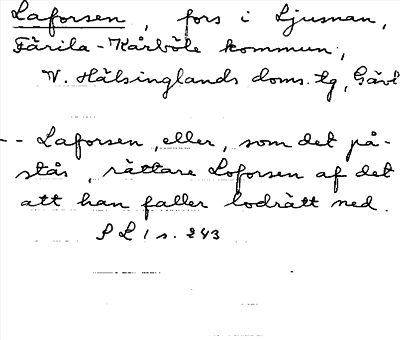 Laforsen, fors i Ljusnan,
Färila-Kårböle kommun,
V. Hälsinglands doms. tg, Gävl
-- Laforsen, eller, som det på-
stås, rättare Loforsen af det
att han faller lodrätt ned.
PL 1 s. 243